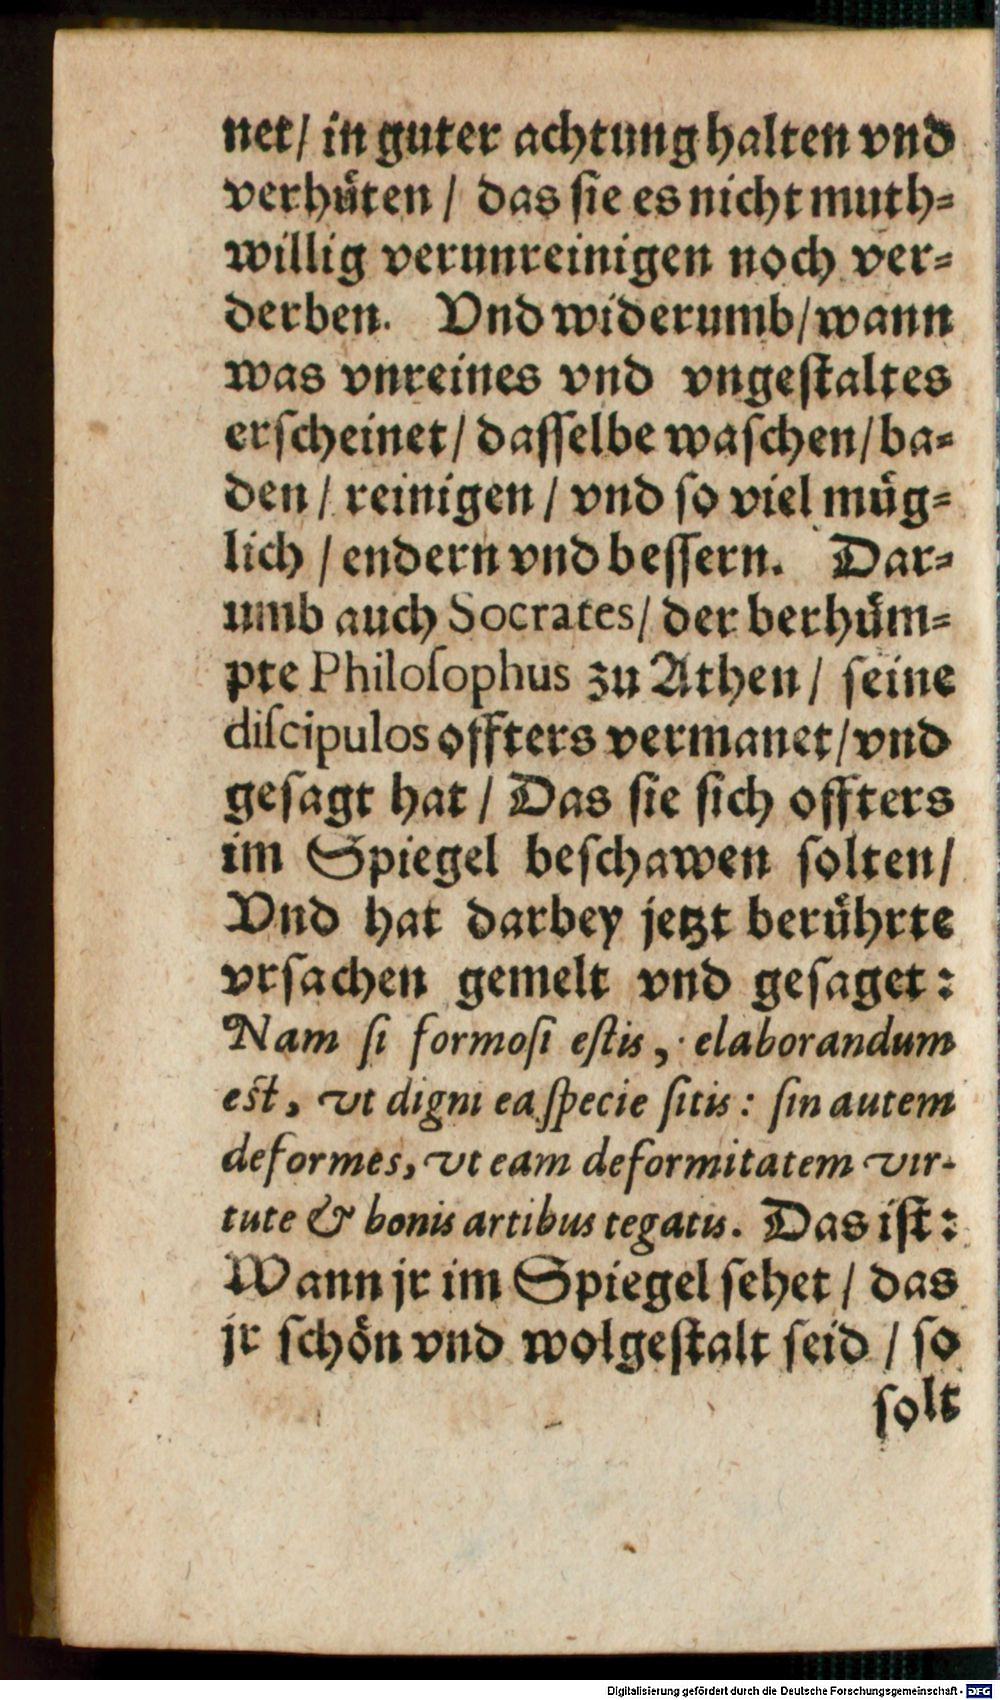 net/ in guter achtung halten vnd
verhuͤten / das ſie es nicht muth⸗
willig verunreinigen noch ver⸗
derben. Vnd widerumb/ wann
was vnreines vnd vngeſtaltes
erſcheinet/ daſſelbe waſchen/ ba⸗
den/ reinigen / vnd ſo viel muͤg⸗
lich / endern vnd beſſern. Dar⸗
umb auch Socrates/ der berhuͤm⸗
pte Philoſophus zu Athen/ ſeine
diſcipulos offters vermanet/ vnd
geſagt hat / Das ſie ſich offters
im Spiegel beſchawen ſolten/
Vnd hat darbey jetzt beruͤhrte
vrſachen gemelt vnd geſaget:
Nam ſi formoſi eſtis, elaborandum
eſt, vt digni ea ſpecie ſitis: ſin autem
deformes, vt eam deformitatem vir-
tute & bonis artibus tegatis. Das iſt:
Wann jr im Spiegel ſehet / das
jr ſchoͤn vnd wolgeſtalt ſeid / ſo
ſolt
Digitalisierung gefördert durch die Deutsche Forschungsgemeinschaft - DFG